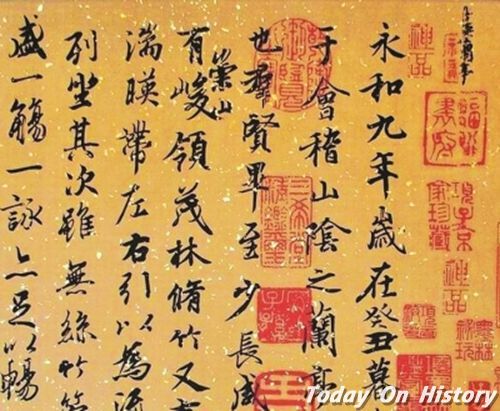 永和九年歲在癸丑暮
于會稽山陰之蘭亭
也羣賢畢至少長咸
有崇山峻領茂林脩竹又
湍暎帶左右引以為流
列坐其次雖無絲竹管
盛一觴一詠亦足以暢
神品
書府
項子京家珍藏
神品
Today On History